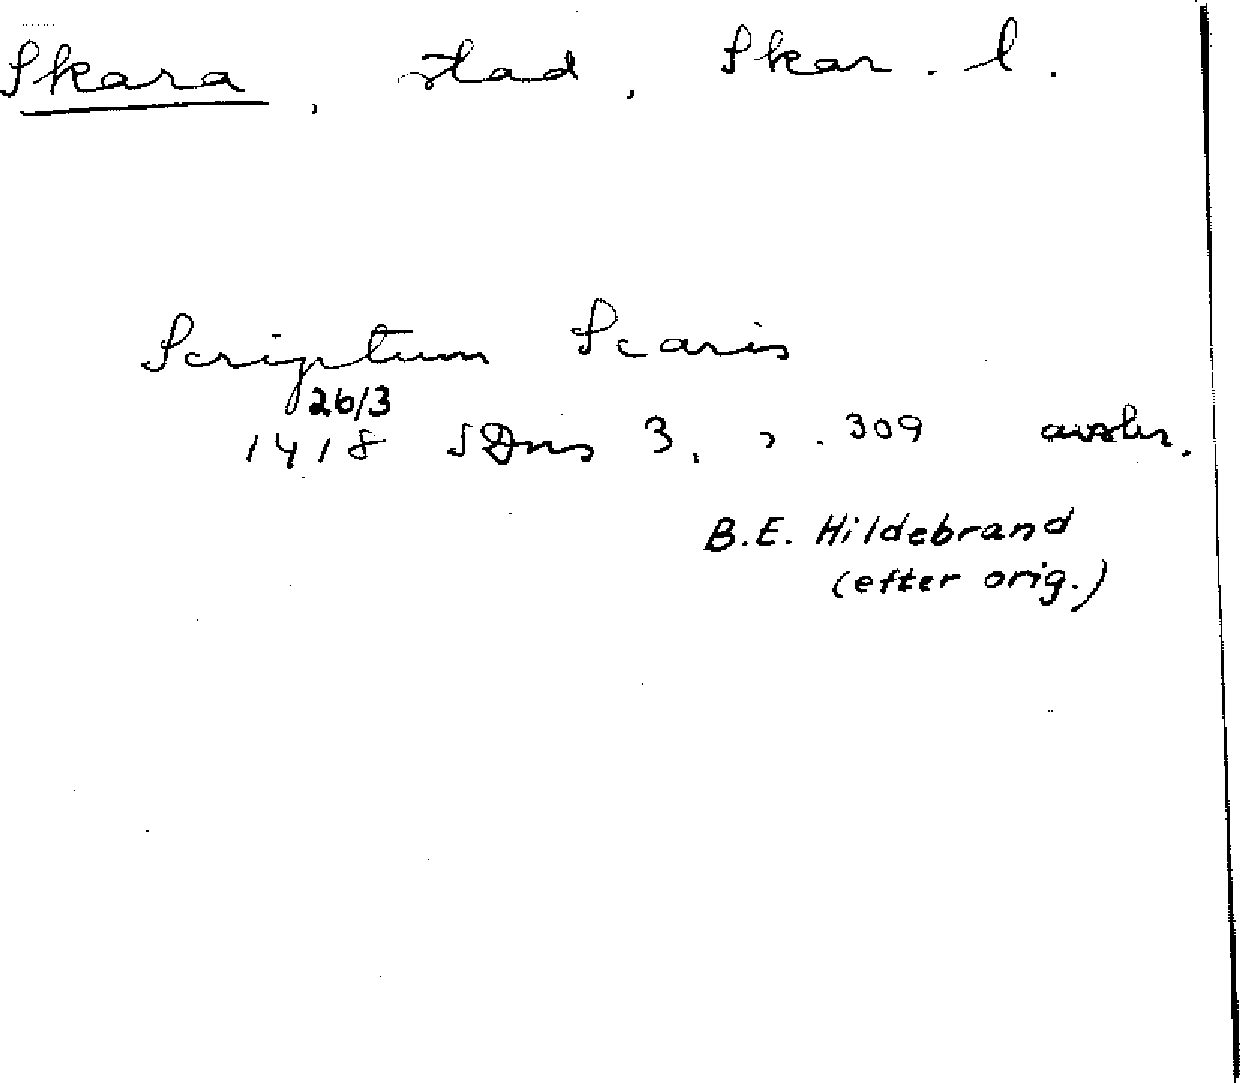 Skara, stad, Skar. l.
Scriptum Scaris
26/3
1418 SDns 3, s. 309 avskr.
B.E. Hildebrand
(efter orig.)